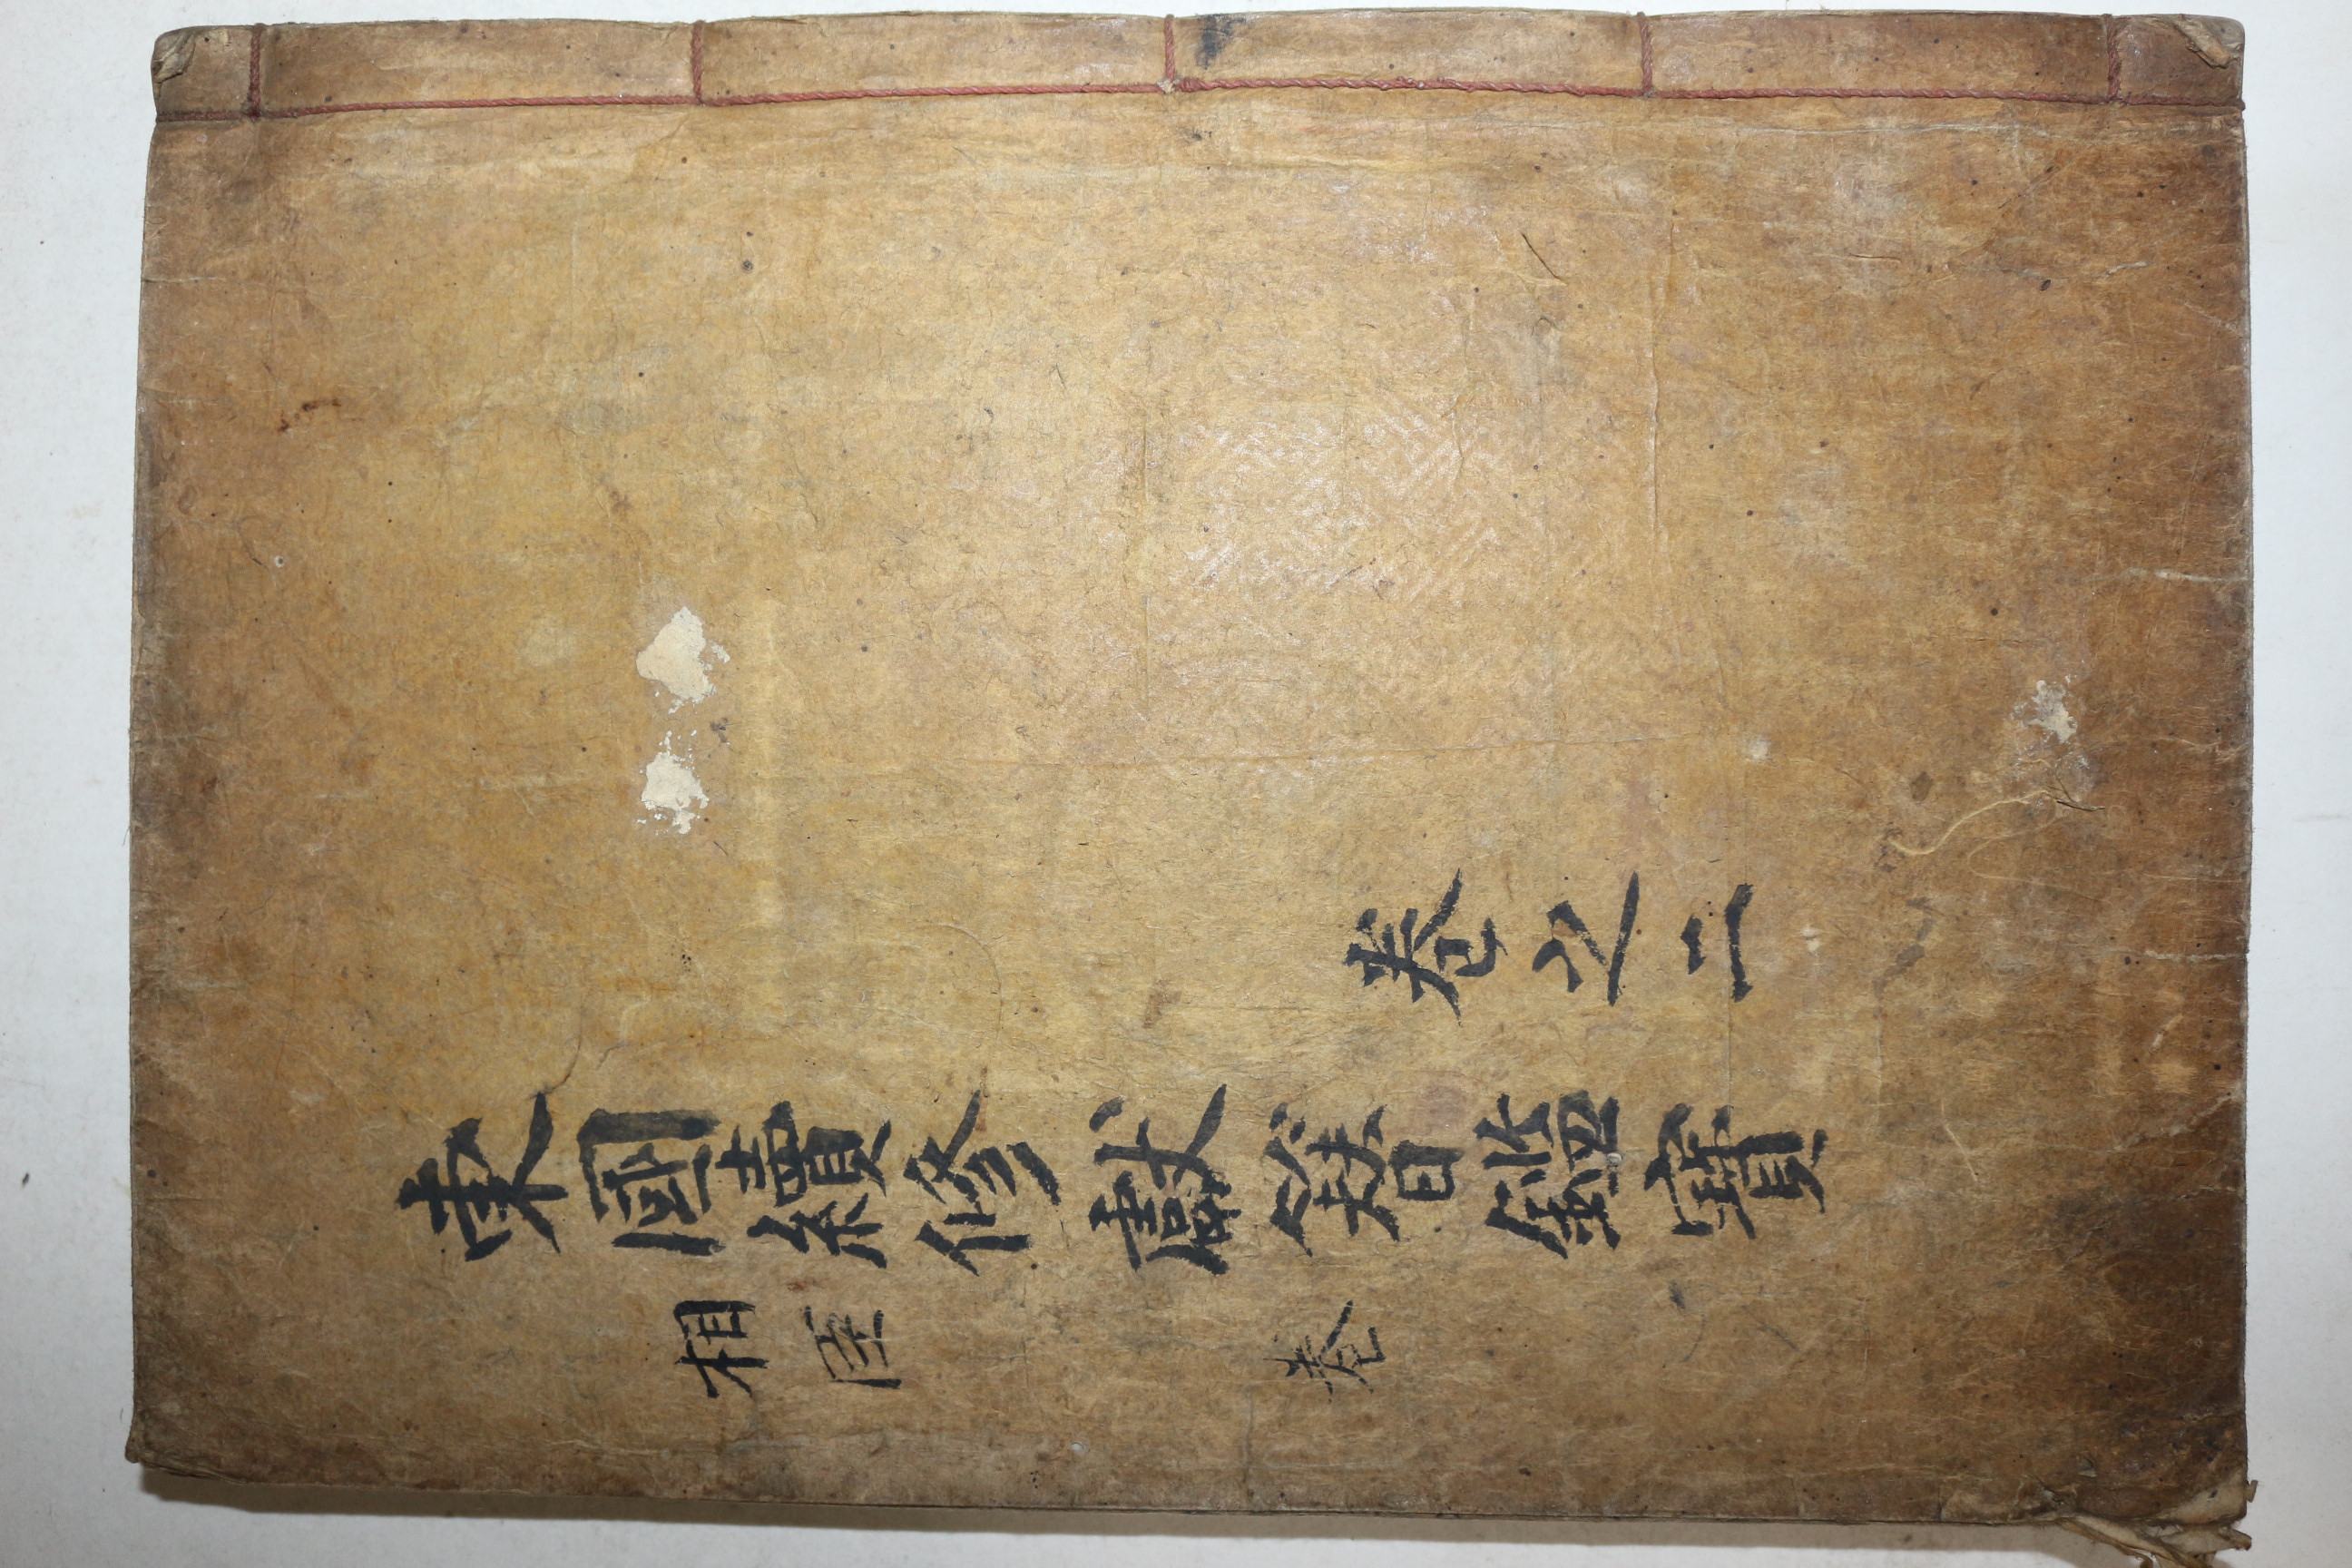 卷之二
東國續修獻簪鑑寶
相臣 卷